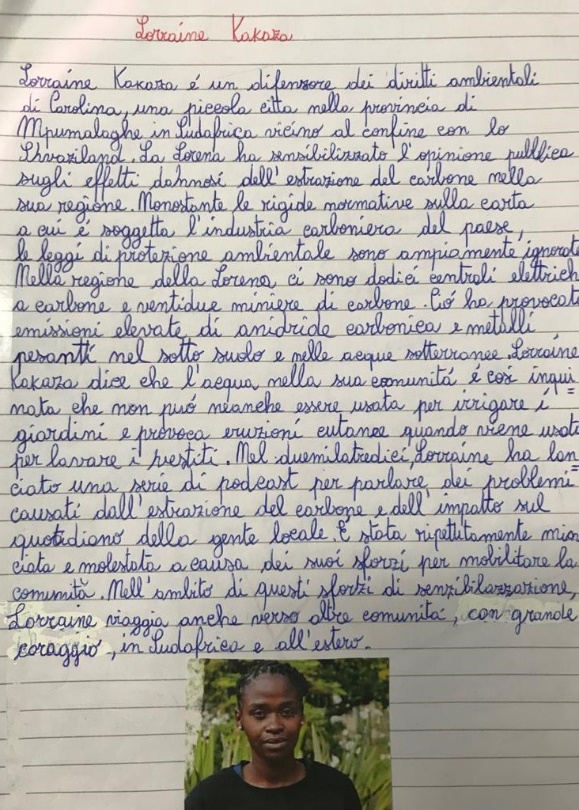 Lorraine Kakaza
Lorraine Kakaza é un difensore dei diritti ambientali
di Carolina, una piccola citta nella provincia di
Mpumalaghe in Sudafrica vicino al confine con lo
Shvaziland. La Lorena ha sensibilizzato l'opinione pubblica
sugli effetti dannosi dell'estrazione del carbone nella
sua regione. Nonostante le rigide normative sulla carta
a cui é soggetta l'industria carboniera del paese,
le leggi di protezione ambientale sono ampiamente ignorate
Nella regione della Lorena ci sono dodici centrali elettrich
a carbone e ventidue miniere di carbone. Ció ha provocato
emissioni elevate di anidride carbonica e metalli
pesantti nel sotto suolo e nelle acque sotterranee. Lorraine
Kakaza dice che l'acqua nella sua comunitá é cosí inqui
nata che non puó neanche essere usata per irrigare i
giardini e provoca eruzioni cutanee quando viene usata
per lavare i vestiti. Nel duemilatredici, Lorraine ha lan
ciato una serie di podcast per parlare dei problemi
causati dall'estrazione del carbone e dell'impatto sul
quotidiano della gente locale. É stata ripetutamente min
ciata e molestata a causa dei suoi sforzi per mobilitare la
comunitá. Nell'ambito di questi sforzi di sensibilazzazione,
Lorraine viaggia anche verso altre comunitá, con grande
coraggio, in Sudafrica e all'estero.